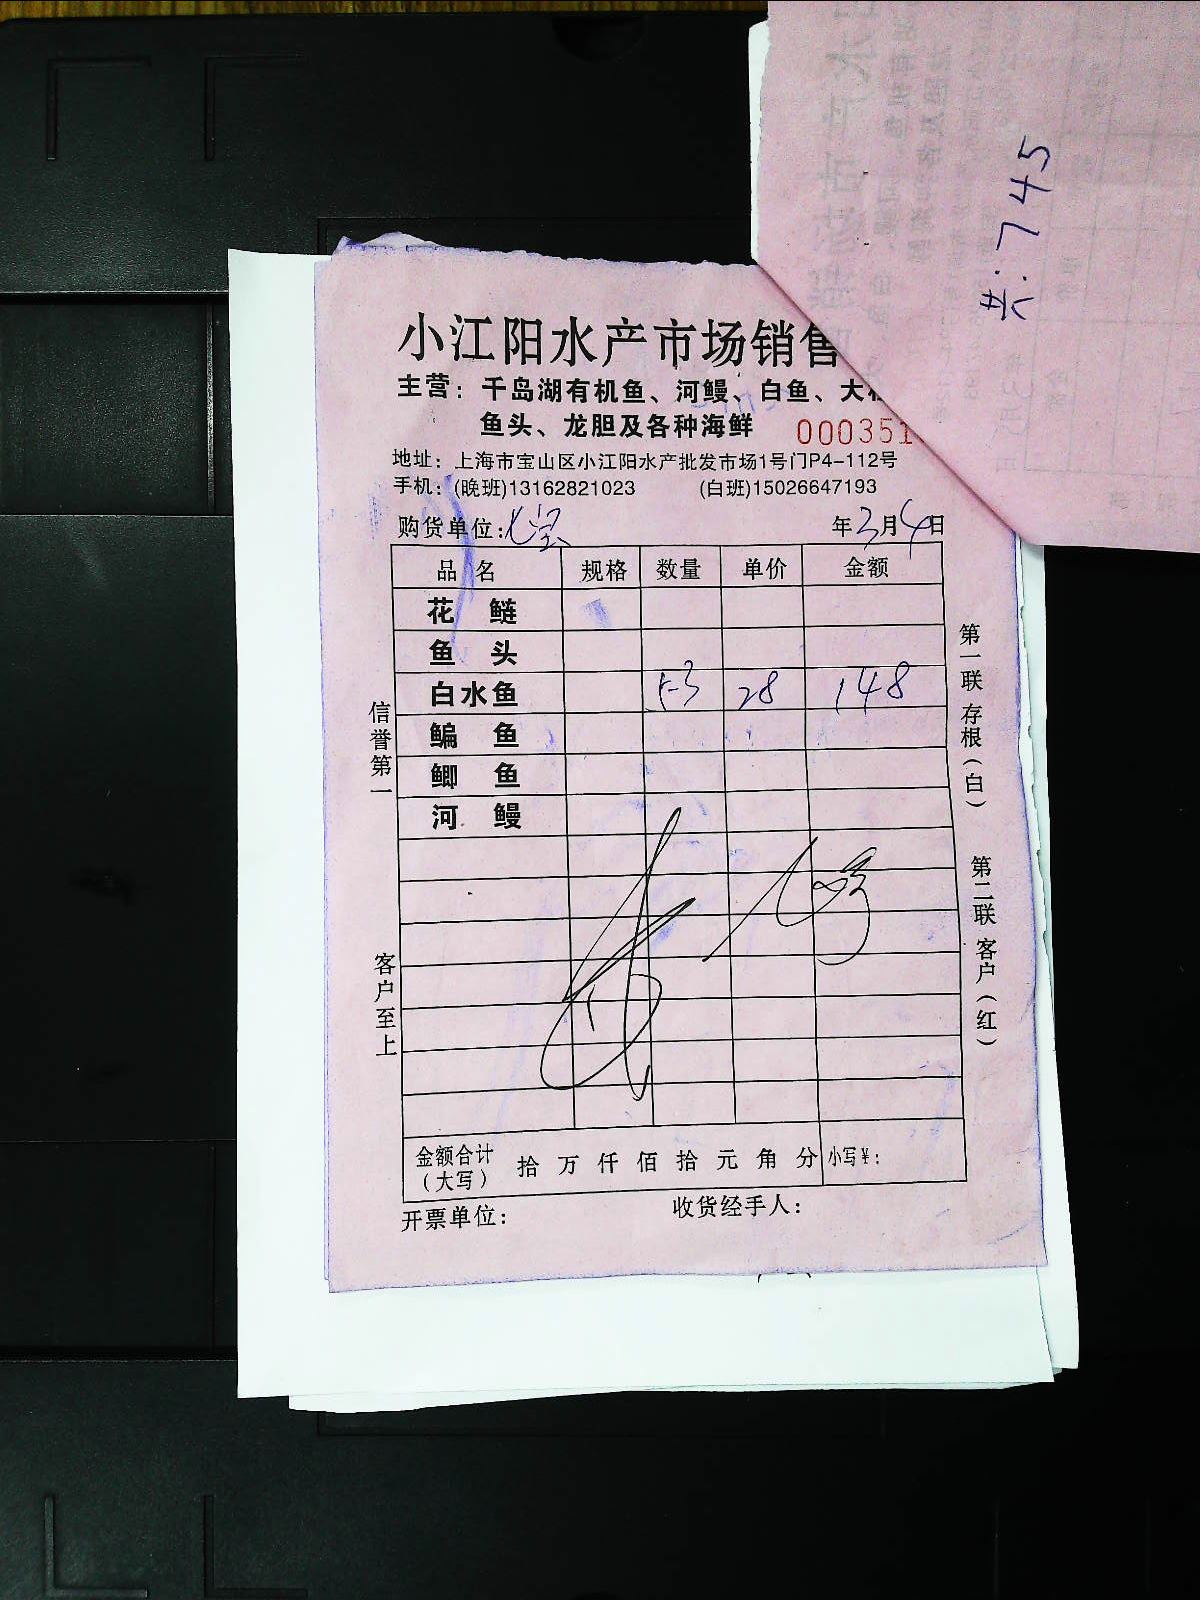 共:745
小江阳水产市场销售
主营：千岛湖有机鱼、河鳗、白鱼、大
鱼头、龙胆及各种海鲜
000351
地址：上海市宝山区小江阳水产批发市场1号门P4-112号
手机：(晚班)13162821023 (白班)15026647193
购货单位:七宝 年3月4日
品 名 规格 数量 单价 金额
花 鲢
鱼 头
白水鱼 5-3 28 148
鳊 鱼
鲫 鱼
河 鳗
金额合计（大写） 拾 万 仟 佰 拾 元 角 分 小写¥：
开票单位： 收货经手人：
信誉第一
客户至上
第一联 存根（白）
第二联 客户（红）